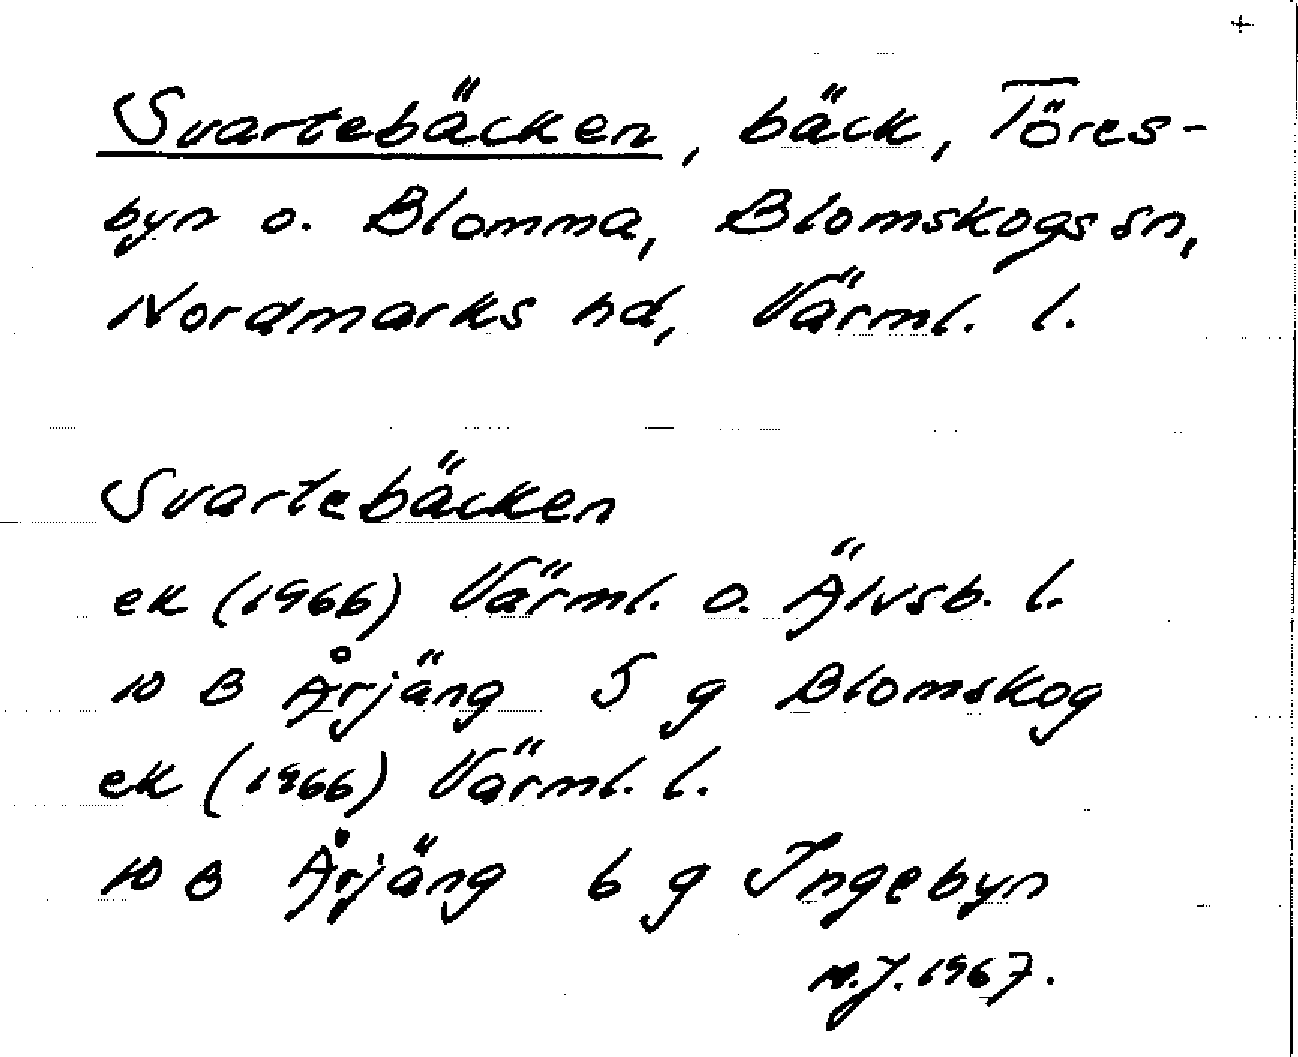 +
Svartebäcken, bäck, Töres-
byn o. Blomma, Blomskogs sn,
Nordmarks hd, Värml. l.
Svartebäcken
ek (1966) Värml. o. Älvsb. l.
10 B Årjäng 5 g Blomskog
ek (1966) Värml. l.
10 B Årjäng 6 g Ingebyn
M.J. 1967.